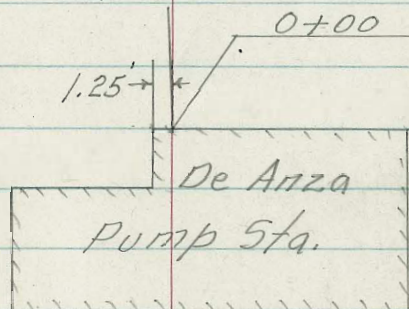 0+00
1.25'
De Anza
Pump Sta.